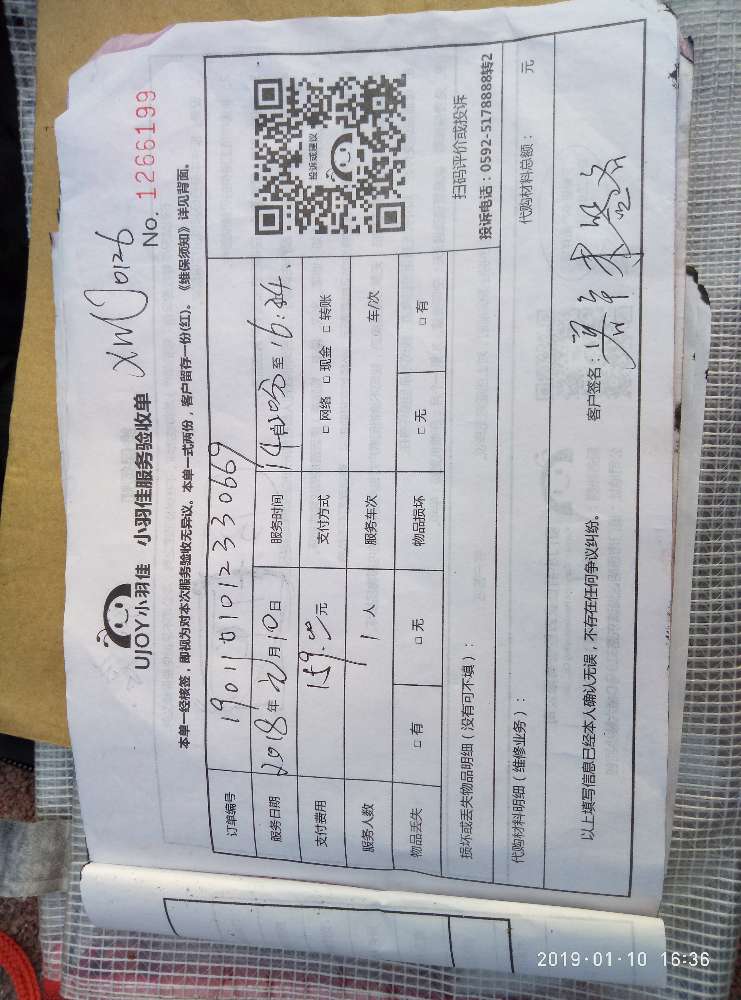 UJOY小羽佳 小羽佳服务验收单
XMU0126
No. 1266199
本单一经核签，即视为对本次服务验收无异议。本单一式两份，客户留存一份(红)。《维保须知》详见背面。
订单编号 190110101233066​9
服务日期 2018年元月10日 服务时间 至16:44.
支付费用 159.00元 支付方式 □ 网络 □ 现金 □ 转账
服务人数 1人 服务车次 车/次
物品丢失 □ 有 □ 无 物品损坏 □ 无 □ 有
投诉或建议
扫码评价或投诉
投诉电话：0592-5178888转2
损坏或丢失物品明细（没有可不填）：
代购材料明细（维修业务）： 代购材料总额： 元
以上填写信息已经本人确认无误，不存在任何争议纠纷。 客户签名：
2019·01·10 16:36